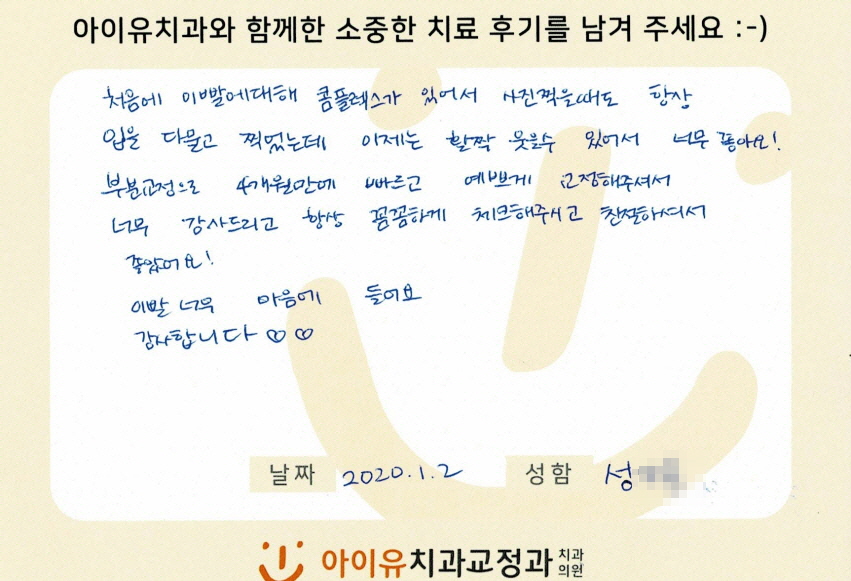 아이유치과와 함께한 소중한 치료 후기를 남겨 주세요 :-)
처음에 이빨에대해 콤플렉스가 있어서 사진찍을때도 항상
입을 다물고 찍었는데 이제는 활짝 웃을수 있어서 너무 좋아요!
부분교정으로 4개월만에 빠르고 예쁘게 교정해주셔서
너무 감사드리고 항상 꼼꼼하게 체크해주시고 친절하셔서
좋았어요!
이빨 너무 마음에 들어요
감사합니다 ♡♡
날짜 2020.1.2 성함 성
아이유치과교정과 치과
의원